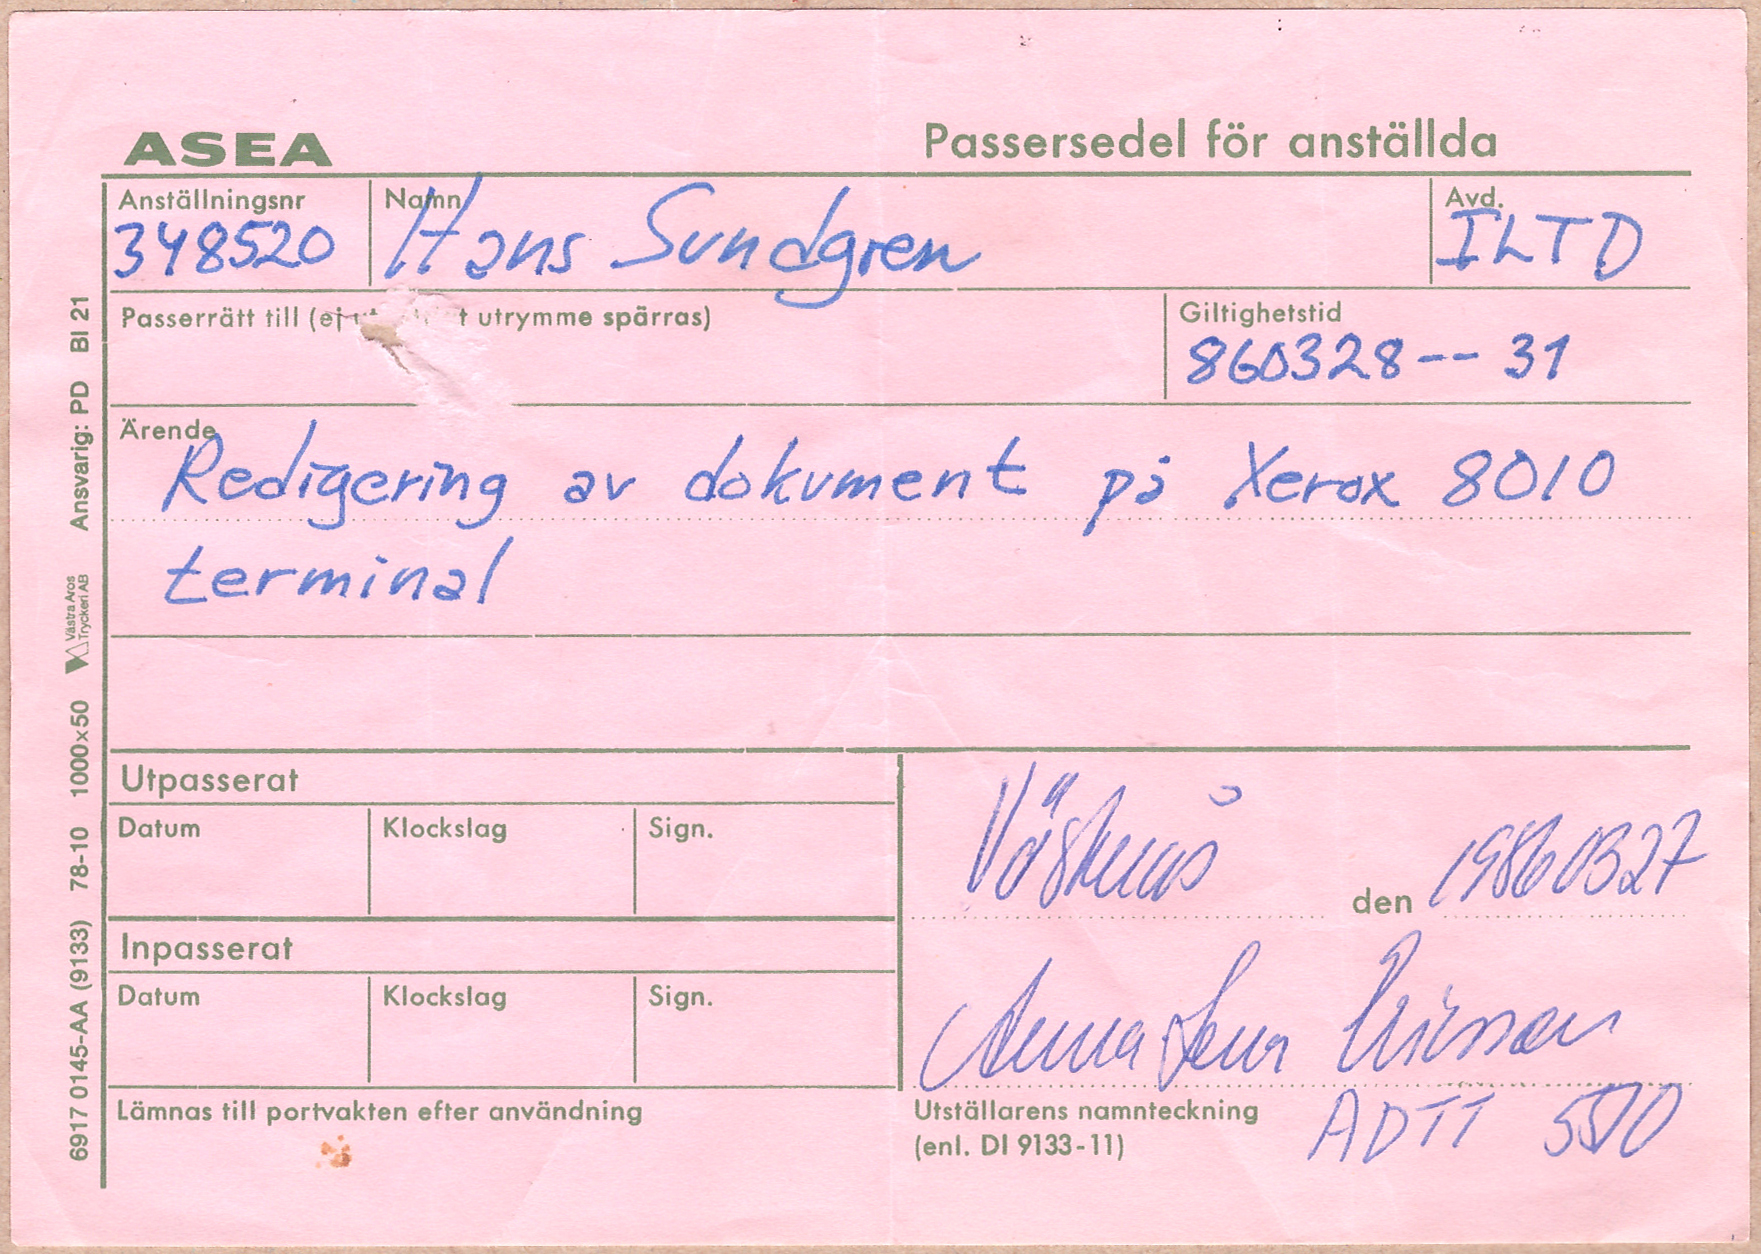 ASEA
Passersedel för anställda
Anställningsnr
Namn
Avd.
348520
Hans Sundgren
ILTD
Passerrätt till (ej utrymme spärras)
Giltighetstid
860328-- 31
Ärende
Redigering av dokument på Xerox 8010
terminal
Utpasserat
Datum
Klockslag
Sign.
Västerås
den 19860327
Inpasserat
Datum
Klockslag
Sign.
Anna Lena
Lämnas till portvakten efter användning
Utställarens namnteckning
(enl. DI 9133-11)
ADTT
6917 0145-AA (9133) 78-10 1000x50
Västra Aros
Tryckeri AB
Ansvarig: PD BI 21